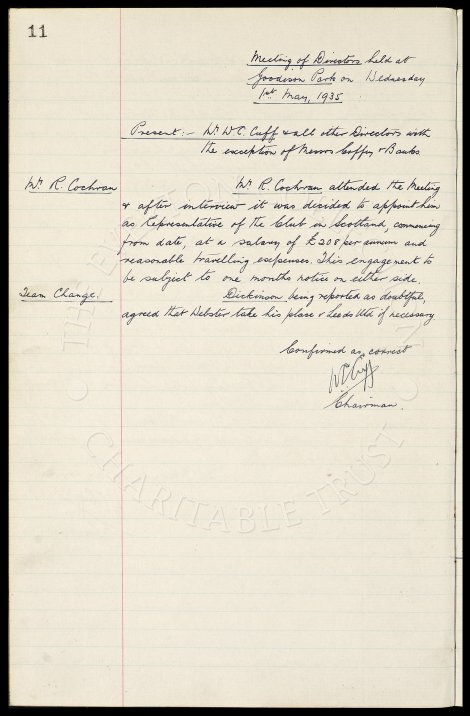 11
Meeting of Directors held at
Goodison Park on Wednesday
1st May, 1935
Present:- Mr W C. Cuff & all other Directors with
the exception of Messrs Coffey & Banks
Mr. R. Cochran
Mr. R. Cochran attended the Meeting
& after interview it was decided to appoint him
as Representative of the Club in Scotland, commencing
from date, at a salary of £208 per annum and
reasonable travelling expenses. This engagement to
be subject to one months notice on either side.
Team Change.
Dickinson being reported as doubtful,
agreed that Webster take his place v Leeds Utd if necessary
Confirmed as correct
W C Cuff
Chairman.
THE EVERTON
CHARITABLE TRUST